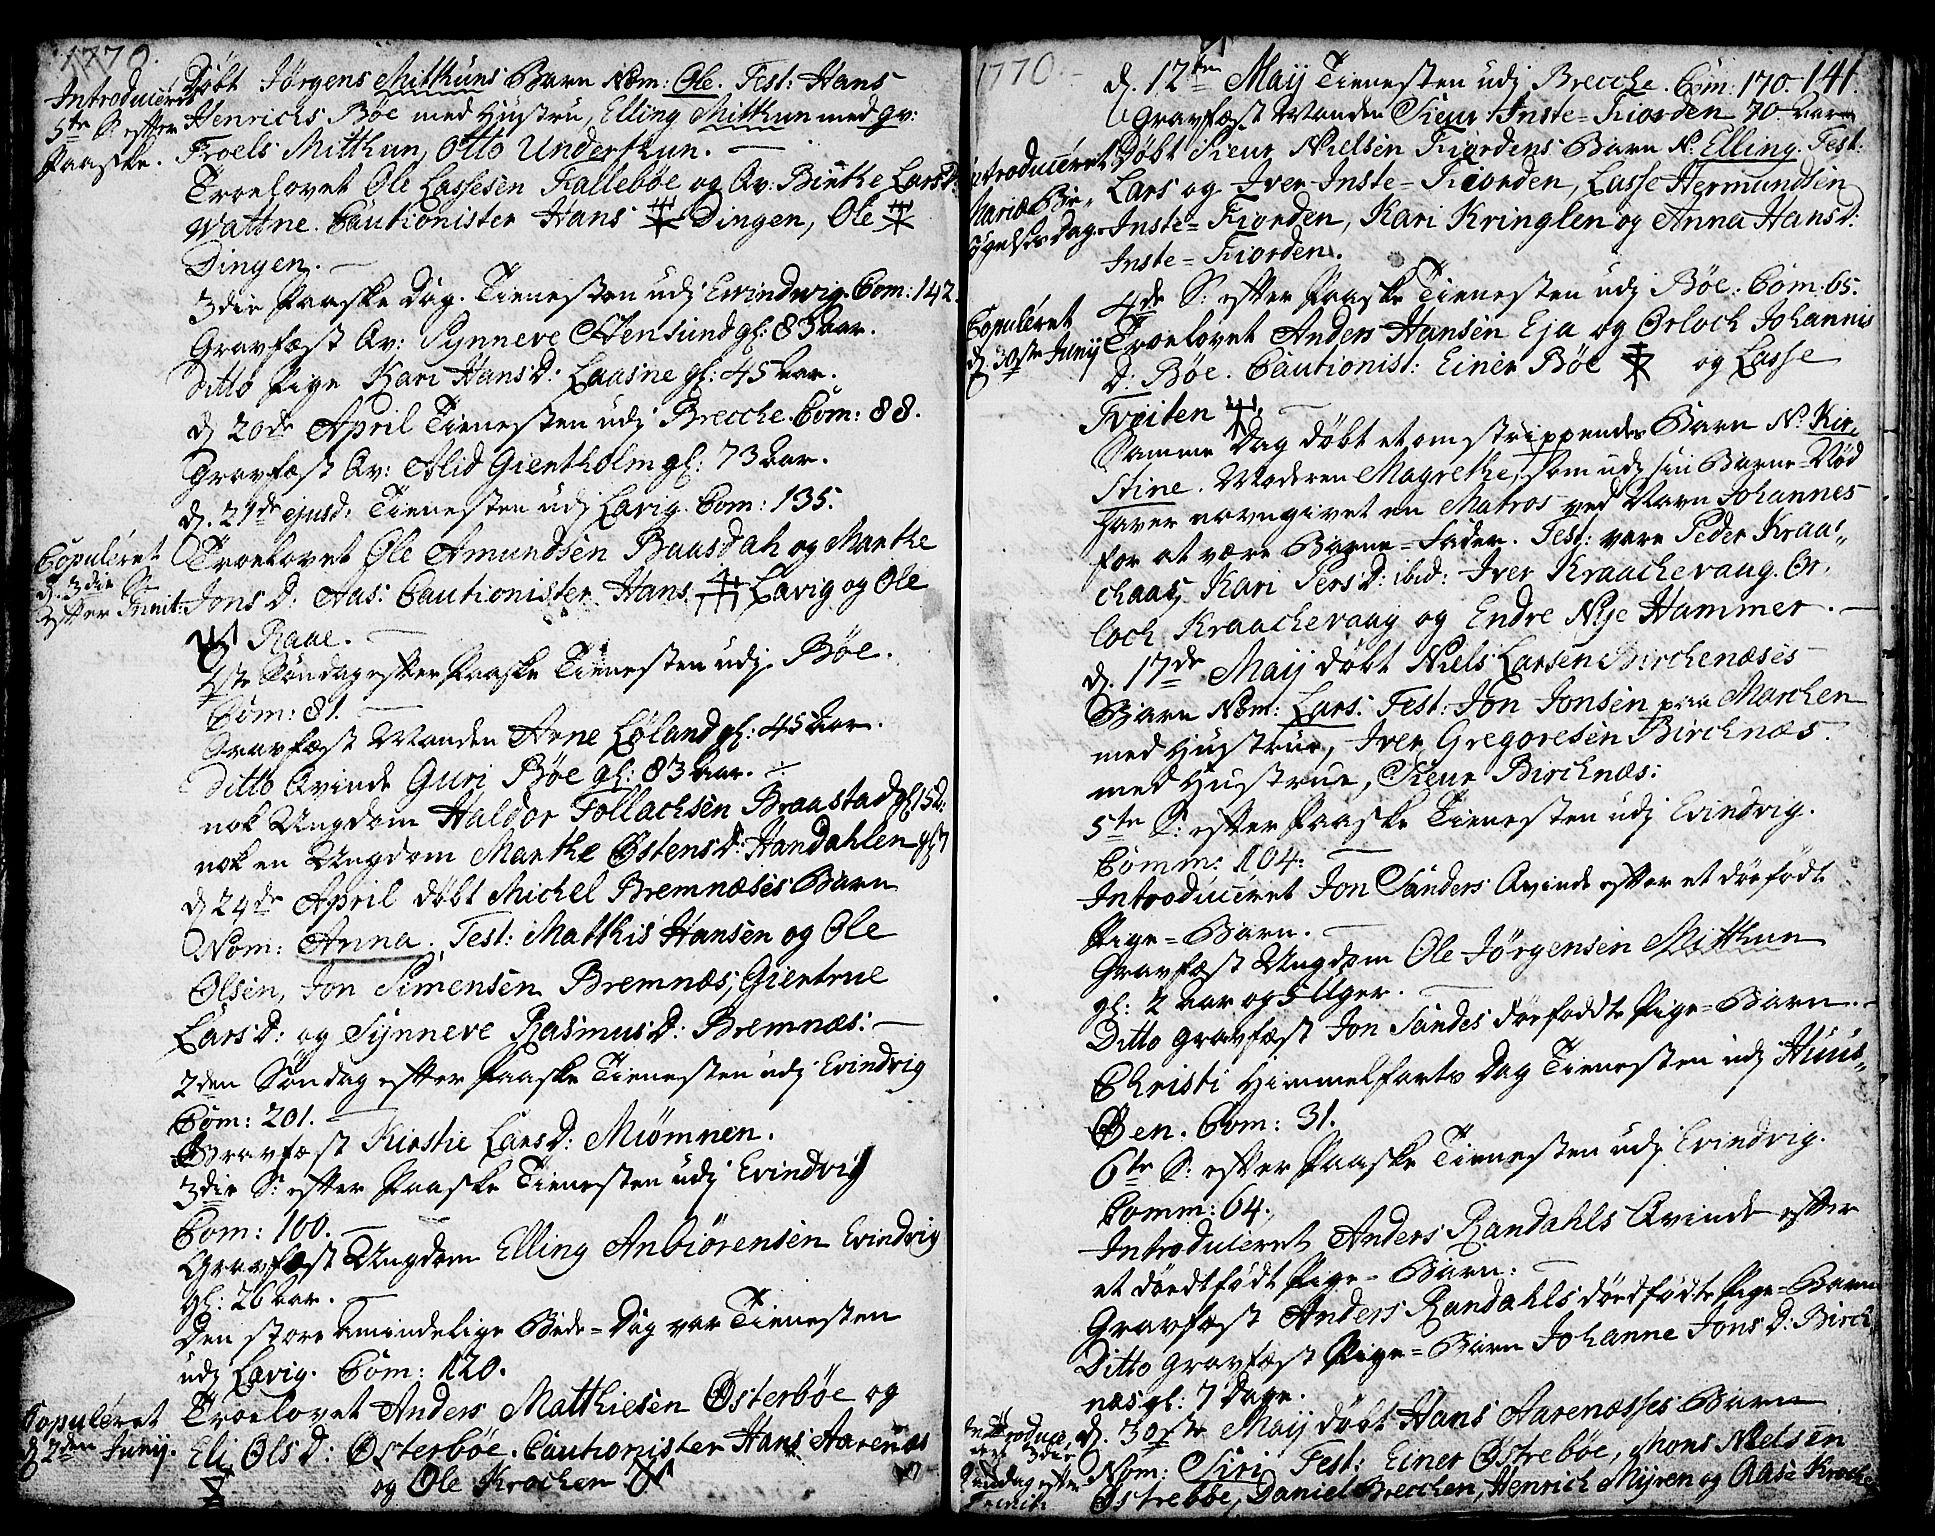 1770.
Døbt Jørgens Mitthuns Barn Nom: Ole. Test: Hans
Introduceret
5te S: efter
Paaske.
Henrichs Bøe med Hustru, Elling Mitthun med qv:
Troels Mitthun, Otto Underthun. —
Troelovet Ole Lassesen Kallebøe og Qv: Birthe Larsd:
Wattne. Cautionister Hans Dingen, Ole
Dingen. —
3die Paaske Dag. Tienesten udj Evindwig. Com: 142.
Gravfæst Qv: Synneve Stensund gl: 83 aar.
Ditto Pige Kari Hans D: Laasne gl: 45 aar.
d. 20de April Tienesten udj Brecche. Com: 88.
Gravfæst Qv: Alid Gientholm gl: 73 aar.
d. 21de ejusd: Tienesten udj Lavig. Com: 135.
Copuleret
d. 3die S:
efter Trinit:
Troelovet Ole Amundsen Baasdah og Marthe
Jons D. Aas: Cautionister Hans Lavig og Ole
Raae. —
1ste Søndag efter Paaske Tienesten udj Bøe.
Com: 81. —
Gravfæst Manden Arne Løland gl: 45 aar.
Ditto Qvinde Guri Bøe gl: 83 aar.
nok Ungdom Haldor Follachsen Braastad gl: 15
nok en Ungdom Marthe Østens D: Handahlen
d. 24de April døbt Michel Bremnæses Barn
Nom: Anna. Test: Matthis Hansen og Ole
Olsen, Jon Simensen Bremnæs, Giertrue
Lars D: og Synneve Rasmus D: Bremnæs: —
2den Søndag efter Paaske Tienesten udj Evindvig
Com: 201. —
Gravfæst Kirstie Lars D: Miømnen.
3die S: efter Paaske Tienesten udj Evindvig
Com: 100. —
Gravfæst Ungdom Elling Anbiørensen Evindvig
gl: 26 aar. —
Den store almindelige Bede=Dag var Tienesten
udj Lavig. Com: 120.
Copuleret
d. 2den Junij.
Troelovet Anders Matthiesen Østerbøe og
Eli Ols D: Østerbøe. Cautionister Hans Aarenæs
og Ole Krochen
1770
141.
d. 12te Maij Tienesten udj Brecche. Com: 170.
Gravfæst Manden Sieur Inste=Fiorden 70 aar
Introduceret
Mariæ Be-
søgelses Dag.
Døbt Sieur Nielsen Fiordens Barn N: Elling. Test:
Lars og Iver Inste=Fiorden, Lasse Hermundsen
Inste=Fiorden, Kari Kringlen og Anna Hans D:
Inste=Fiorden.
4de S: efter Paaske Tienesten udj Bøe. Com: 65.
Copuleret
d. 30ste Junij
Troelovet Anders Hansen Eja og Ørloch Johannis
D: Bøe. Cautionist: Einer Bøe og Lasse
Tveiten —
Samme Dag døbt et omstrippendes Barn N: Kir-
stine. Moderen Magrethe, som udj sin Barne=Nød
haver navngivet en Matros ved Navn Johannes
for at være Barne=Fader. Test: vare Peder Kraa-
chaas, Kari Pers D: ibid: Iver Kraachevaag. Or-
loch Kraachevaag og Endre Nye Hammer. —
d. 17de Maij døbt Niels Larsen Birchenæses
Barn Nom: Lars. Test: Jon Jonsen paa Marchen
med Hustrue, Iver Gregoresen Birchnæs.
med Hustrue, Sieur Birchnæs:
5te S: efter Paaske Tienesten udj Evindvig.
Comm: 104. —
Introduceret Jon Sanders Qvinde efter et dødfødt
Pige=Barn. —
Gravfæst Ungdom Ole Jørgensen Mitthun
gl: 2 aar og 5 Uger. —
Ditto gravfæst Jon Sandes dødfødte Pige=Barn. —
Christi Himmelfarts Dag Tienesten udj Huus-
Øen. Com: 31.
6te S: efter Paaske Tienesten udj Evindvig.
Comm: 64.
Introduceret Anders Randahls Qvinde efter
et dødtfødt Pige=Barn: —
Gravfæst Anders Randahls dødfødte Pige=Barn
Ditto gravfæst Pige=Barn Johanne Jons D: Birch-
næs gl: 7 Dage.
Introduce-
ret 3die
Søndag efter
Trinit:
d. 30ste Maij døbt Hans Aarenæsses Barn
Nom: Siri. Test: Einer Østrebøe, Mons Nielsen
Østrebøe, Daniel Brecchen, Henrich Myren og Aase Kroche